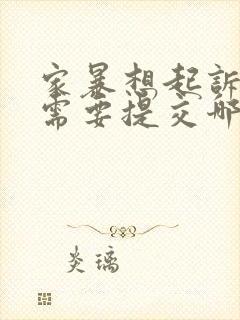 家暴想起訴
需要提交哪
炎璃